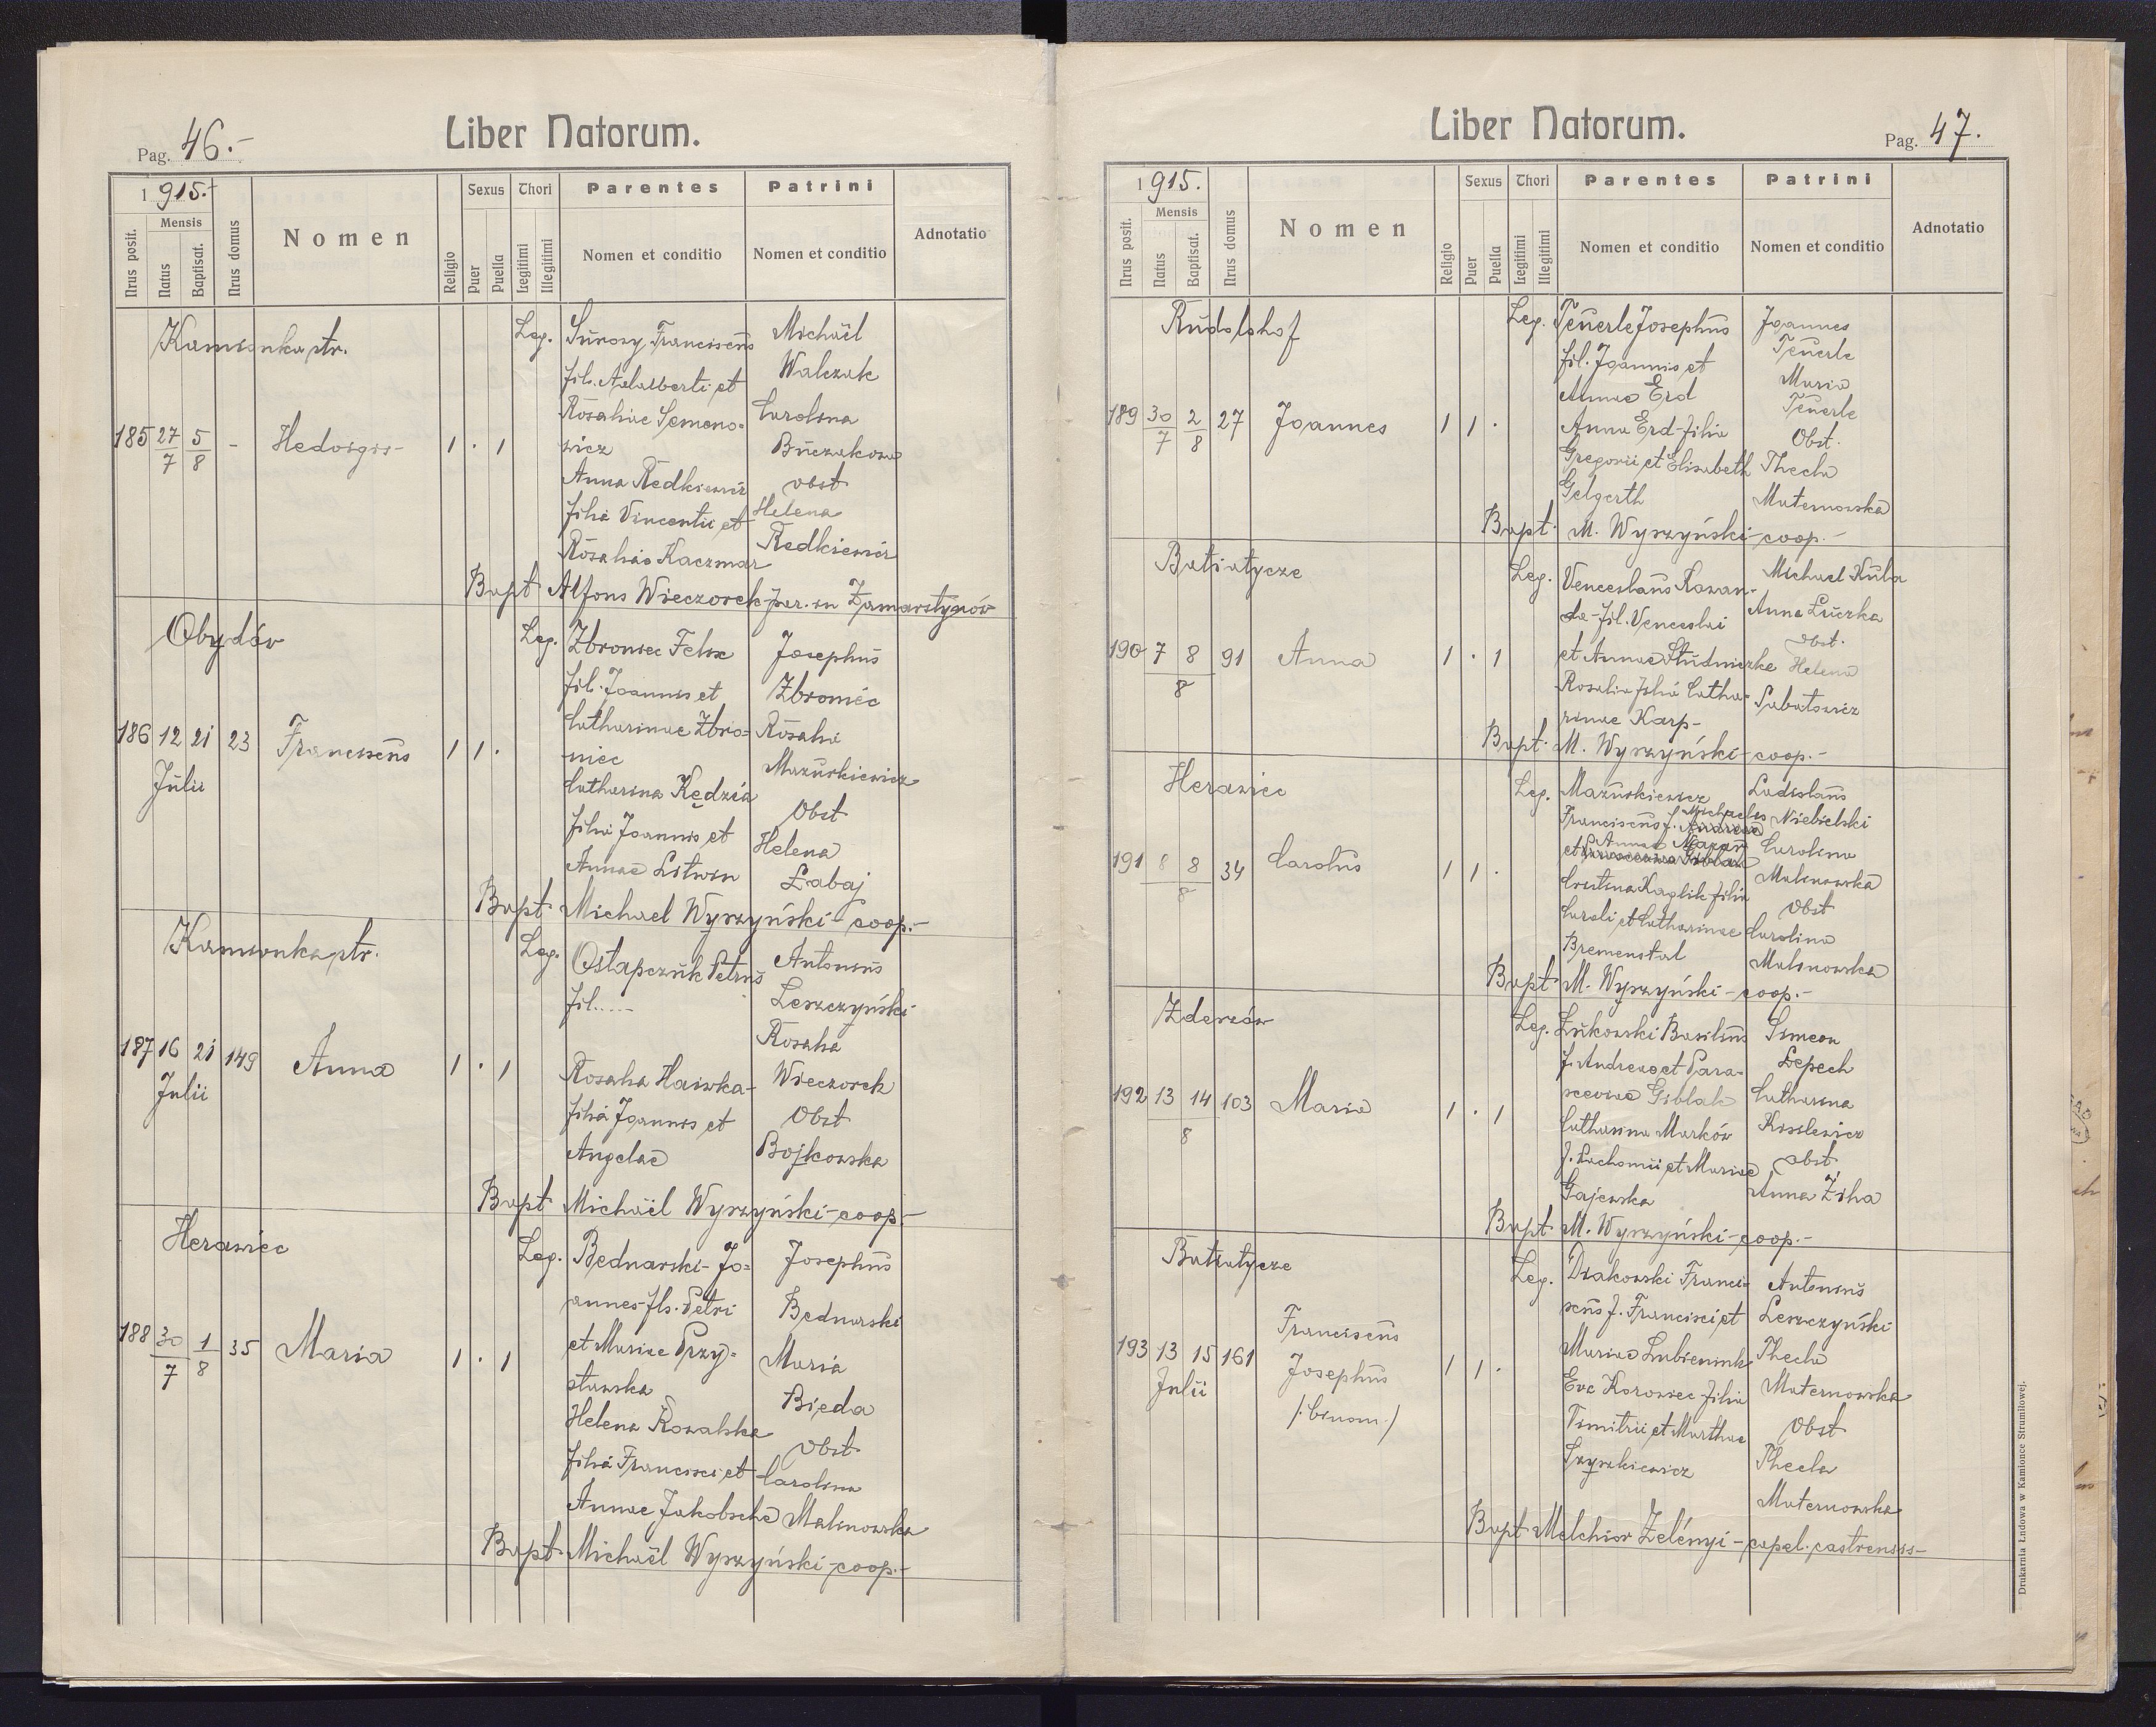 Pag. 46.-
Liber Natorum.
1 915.-
Nrus posit.
Mensis
Natus
Baptisat.
Nrus domus
Nomen
Religio
Sexus
Puer
Puella
Thori
Legitimi
Illegitimi
Parentes
Nomen et conditio
Patrini
Nomen et conditio
Adnotatio
Kamionka str.
185 27/7 5/8 - Hedvigis- 1 . 1
Leg.
Surosy Franciscus
fil. Adalberti et
Rosaliae Semeno-
wicz
Anna Redkiewicz
filia Vincentii et
Rosalias Kaczmar
Michaël
Walczak
Carolina
Buczakowa
obst
Helena
Redkiewicz
Bapt Alfons Wieczorek-par. in Zamarstynów
Obydów
186 12 21 23 Franciscus 1 1 .
Julii
Leg.
Zbroniec Felix
fil. Joannis et
Catharinae Zbro-
niec
Catharina Kędzia
filia Joannis et
Annae Litwin
Josephus
Zbroniec
Rosalia
Mazurkiewicz
Obst
Helena
Łabaj
Bapt Michael Wyrzyński-coop.-
Kamionka str.
187 16 21 149 Anna 1 . 1
Julii
Leg.
Ostapczuk Petrus
fil.....
Rosalia Haiwka-
filia Joannis et
Angelae
Antonius
Leszczyński
Rosalia
Wieczorek
Obst
Bojkowska
Bapt Michaël Wyrzyński-coop.-
Herawiec
188 30/7 1/8 35 Maria 1 . 1
Leg.
Bednarski-Jo-
annes-fil. Petri
et Mariae Przy-
stawska
Helena Kowalska
filia Francisci et
Annae Jakobsche
Josephus
Bednarski
Maria
Bieda
Obst
Carolina
Malinowska
Bapt. Michaël Wyrzyński-coop.-
Liber Natorum.
Pag. 47.
1 915.
Nrus posit.
Mensis
Natus
Baptisat.
Nrus domus
Nomen
Religio
Sexus
Puer
Puella
Thori
Legitimi
Illegitimi
Parentes
Nomen et conditio
Patrini
Nomen et conditio
Adnotatio
Rudolshof
189 30/7 2/8 27 Joannes 1 1 .
Leg.
Teuerle Josephus
fil. Joannis et
Annae Erd
Anna Erd-filia
Gregorii et Elisabeth
Gelgerth
Joannes
Teuerle
Maria
Teuerle
Obst.
Thecla
Maternowska
Bapt. M. Wyrzyński-coop.-
Batiatycze
190 7 8 91 Anna 1 . 1
8
Leg.
Venceslaus Kawan-
da-fil. Venceslai
et Annae Studniczke
Rosalia filia Catha-
rinae Karp-
Michael Kula
Anna Łuczka
Obst.
Helena
Sabatowicz
Bapt. M. Wyrzyński-coop.-
Herawiec
191 8 8 34 Carolus 1 1 .
8
Leg.
Mazurkiewicz
Franciscus f. Michaelis
et Annae Mazur
Cristina Kaplik-filia
Caroli et Catharinae
Bremenstal
Ladislaus
Niebielski
Carolina
Malinowska
Obst
Carolina
Malinowska
Bapt. M. Wyrzyński-coop.-
Zderzów
192 13 14 103 Maria 1 . 1
8
Leg.
Żukowski Basilius
f. Andreae et Para-
sceviae Giblak
Catharina Marków
f. Pachomii et Mariae
Gajewska
Simeon
Łepech
Catharina
Kisslewicz
Obst
Anna Ziha
Bapt. M. Wyrzyński-coop.-
Batiatycze
193 13 15 161 Franciscus
Josephus
/:binom:/
1 1 .
Julii
Leg.
Diakowski Franci-
scus f. Francisci et
Mariae Łubieniuk
Eva Korowiec filia
Dmitrii et Marthae
Szyszkiewicz
Antonius
Leszczyński
Thecla
Maternowska
Obst
Thecla
Maternowska
Bapt Melchior Zelényi-capel. castrensis-
Drukarnia Ludowa w Kamionce Strumiłowej.